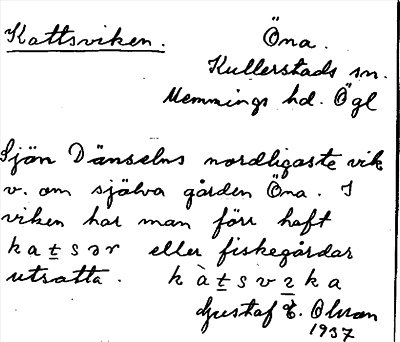 Kattsviken.
Öna.
Kullerstads sn.
Memmings hd. Ögl
Sjön Dänselns nordligaste vik
v. om själva gården Öna. I
viken har man förr haft
kat̲sər eller fiskegårdar
utsatta. kàt̲svɪka
Gustaf E. Olsson
1937